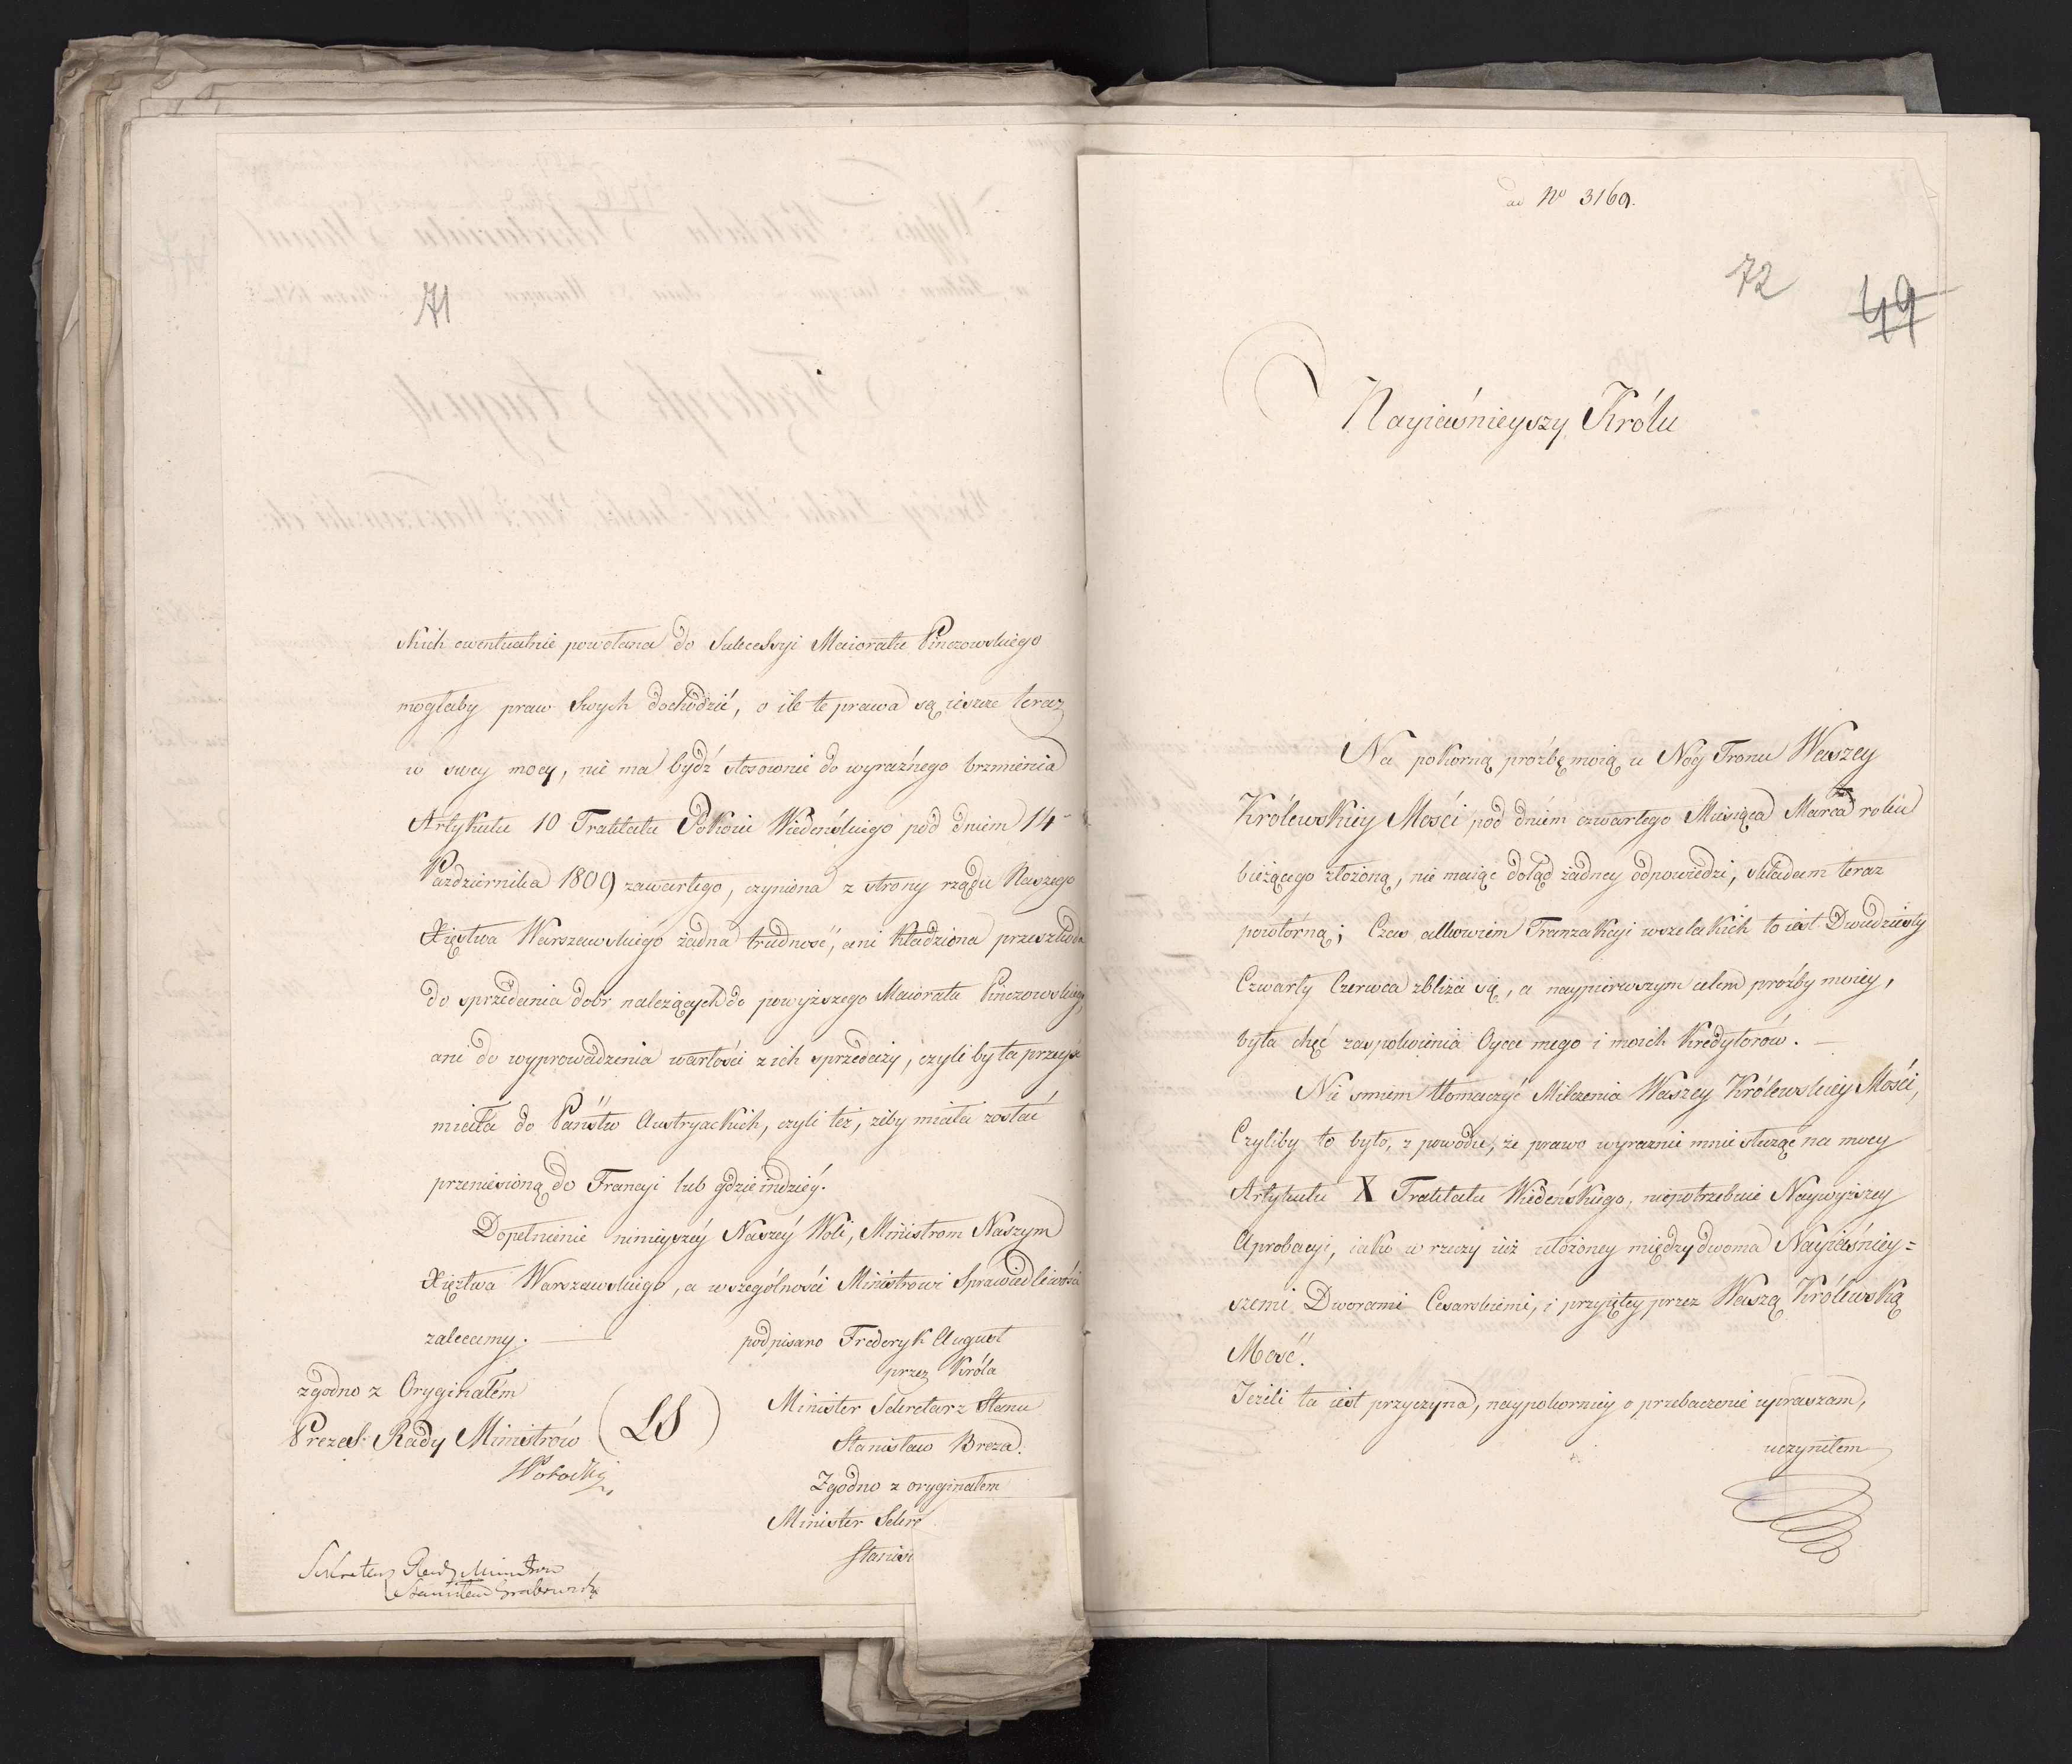 71
skich ewentualnie powołana do Sukcessyi Maioratu Pinczowskiego
mogłaby praw swych dochodzić, o ile te prawa są ieszcze teraz
w swey mocy, nie ma bydź stosownie do wyraźnego brzmienia
Artykułu 10 Traktatu Pokoiu Wiedeńskiego pod dniem 14
Pazdziernika 1809 zawartego, czyniona z strony rządu Naszego
Xięstwa Warszawskiego żadna trudność, ani kładziona przeszkoda
do sprzedania dobr należących do powyższego Maioratu Pinczowskiego,
ani do wyprowadzenia wartości z ich sprzedaży, czyliby ta przeyść
miała do Państw Austryackich, czyli też, żeby miała zostać
przeniesioną do Francyi lub gdzieindziéy.
Dopełnienie ninieyszéy Naszéy Woli, Ministrom Naszym
Xięztwa Warszawskiego, a w szególności Ministrowi Sprawiedliwości
zalecamy.
podpisano Frederyk August
przez Króla
Minister Sekretarz Stanu
Stanisław Breza.
Zgodno z oryginałem
Minister Sekre
Stanisł
zgodno z Oryginałem
Prezes Rady Ministrów
(LS)
Sekretarz Rady Ministrów
Stanisław Grabowski
ad No 3169.
72
49
Nayiaśnieyszy Królu
Na pokorną prożbę moią u Nóg Tronu Waszey
Królewskiey Mości pod dniem czwartego Miesiąca Marca roku
bieżącego złożoną, nie maiąc dotąd żadney odpowiedzi, składam teraz
powtórną; Czas albowiem Tranzakcyi wszelakich to iest Dwudziesty
Czwarty Czerwca zbliża się, a naypierwszym celem prożby moiey,
była chęć zaspokoienia Oyca mego i moich Kredytorów.
Nie smiem tłomaczyć Milczenia Waszey Królewskiey Mości,
Czyliby to było, z powodu, że prawo wyraznie mnie służące na mocy
Artykułu X Traktatu Wiedeńskiego, niepotrzebuie Naywyższey
Aprobacyi, iako w rzeczy iuż ułożoney między dwoma Nayiaśniey=
szemi Dworami Cesarskiemi, i przyiętey przez Waszą Królewską
Mość.
Ieżeli ta iest przyczyna, naypokorniey o przebaczenie upraszam,
uczyniłem